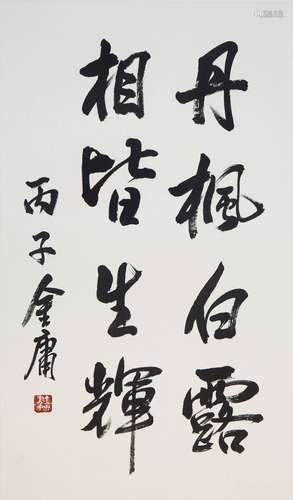 丹楓白露
相皆生輝
丙子金庸